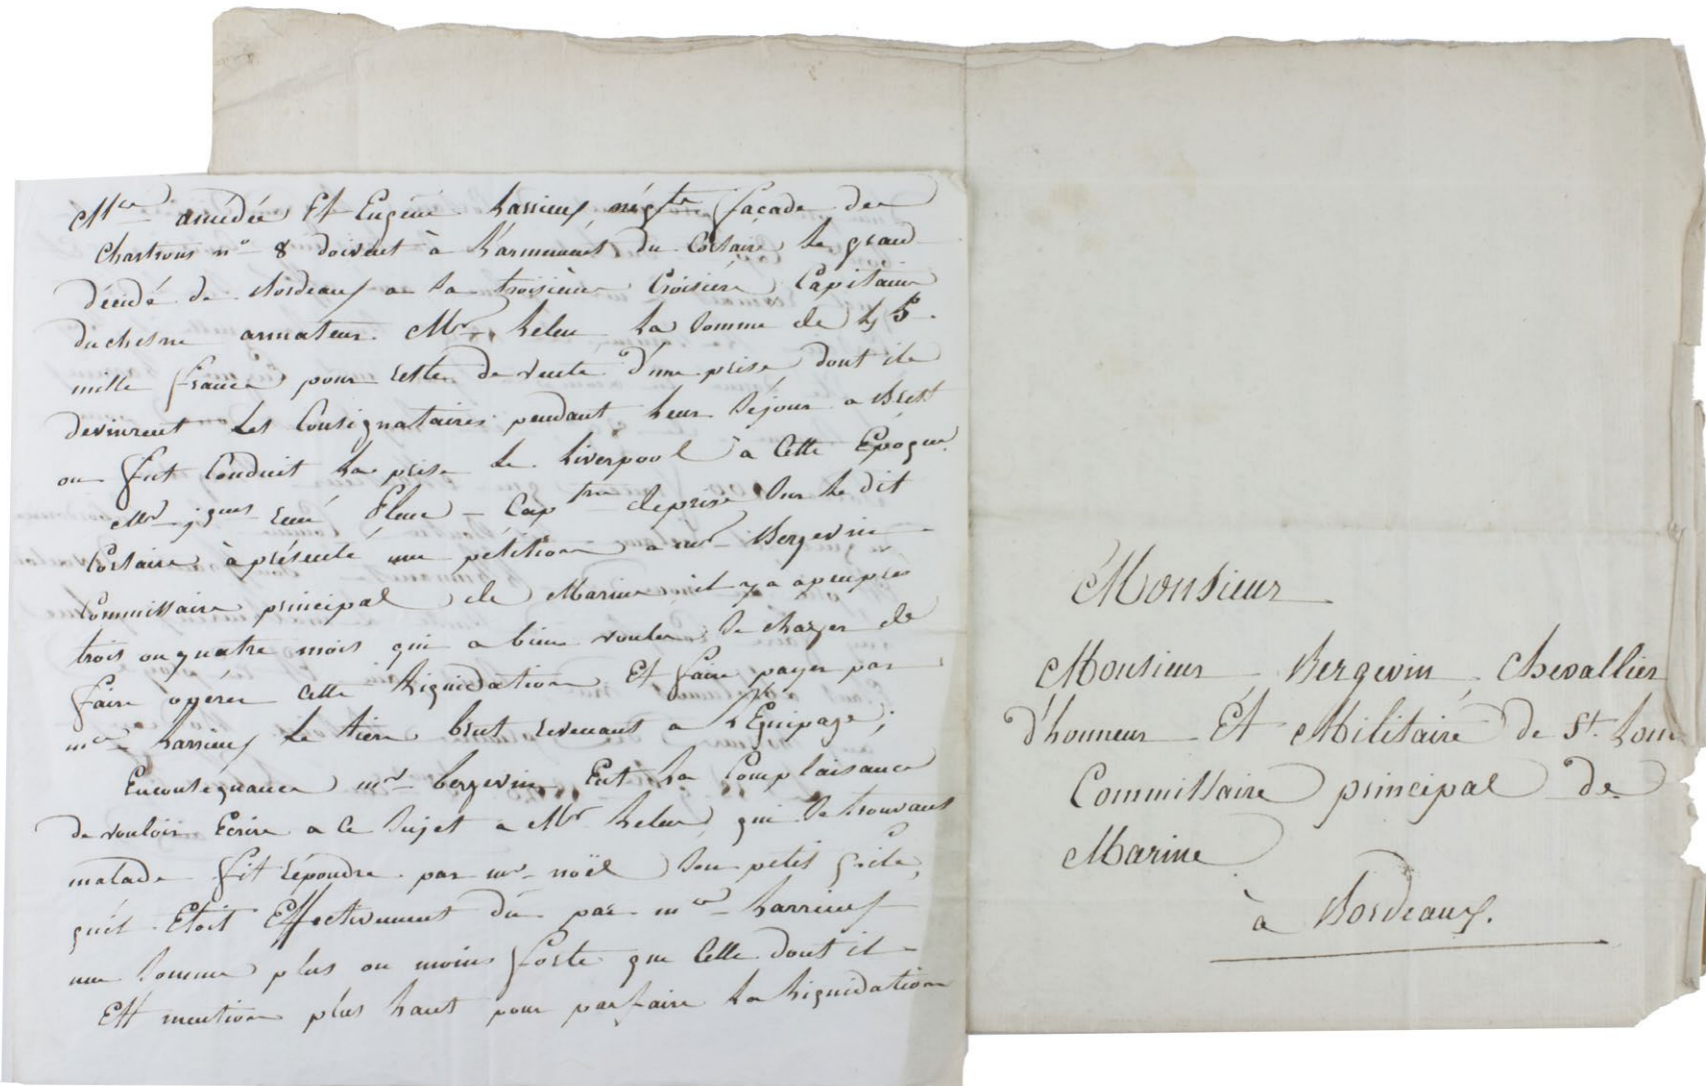 Mrs amédée Et Eugène Larrieuf négts façade des
Chartrons n° 8 doivent à L'armement du Corsaire Le grand
décidé de Bordeaux a Sa troisième Croisière Capitaine
duchesne armateur Mr. Leleu La Somme de 45
mille francs pour reste de vente d'une prise dont ils
devinrent Les Consignataires pendant Leur Séjour a Brest
ou fut Conduit La prise Le Liverpool à Cette Epoque.
Mr jques rené Cap tne de prise Sur Le dit
Corsaire à présenté une pétition a mr Bergevin
Commissaire principal de Marine il y a apeuprés
trois ou quatre mois qui a bien voulu Se charger de
faire opérer Cette Liquidation Et faire payer par
mrs Larrieuf Le tiers brut revenant a L'Equipage;
Enconséquance mr bergevin Eut La Complaisance
de vouloir Ecrire a Ce Sujet a Mr Leleu qui Se trouvant
malade fit répondre par mr noël Son petit fils,
quil Etoit Effectivement dû par mrs Larrieuf
une Somme plus ou moins forte que Celle dont il
Est mention plus haut pour parfaire La Liquidation
Monsieur
Monsieur Bergevin Chevallier
d'honneur Et Militaire de St. Louis
Commissaire principal de
Marine
à Bordeaux.